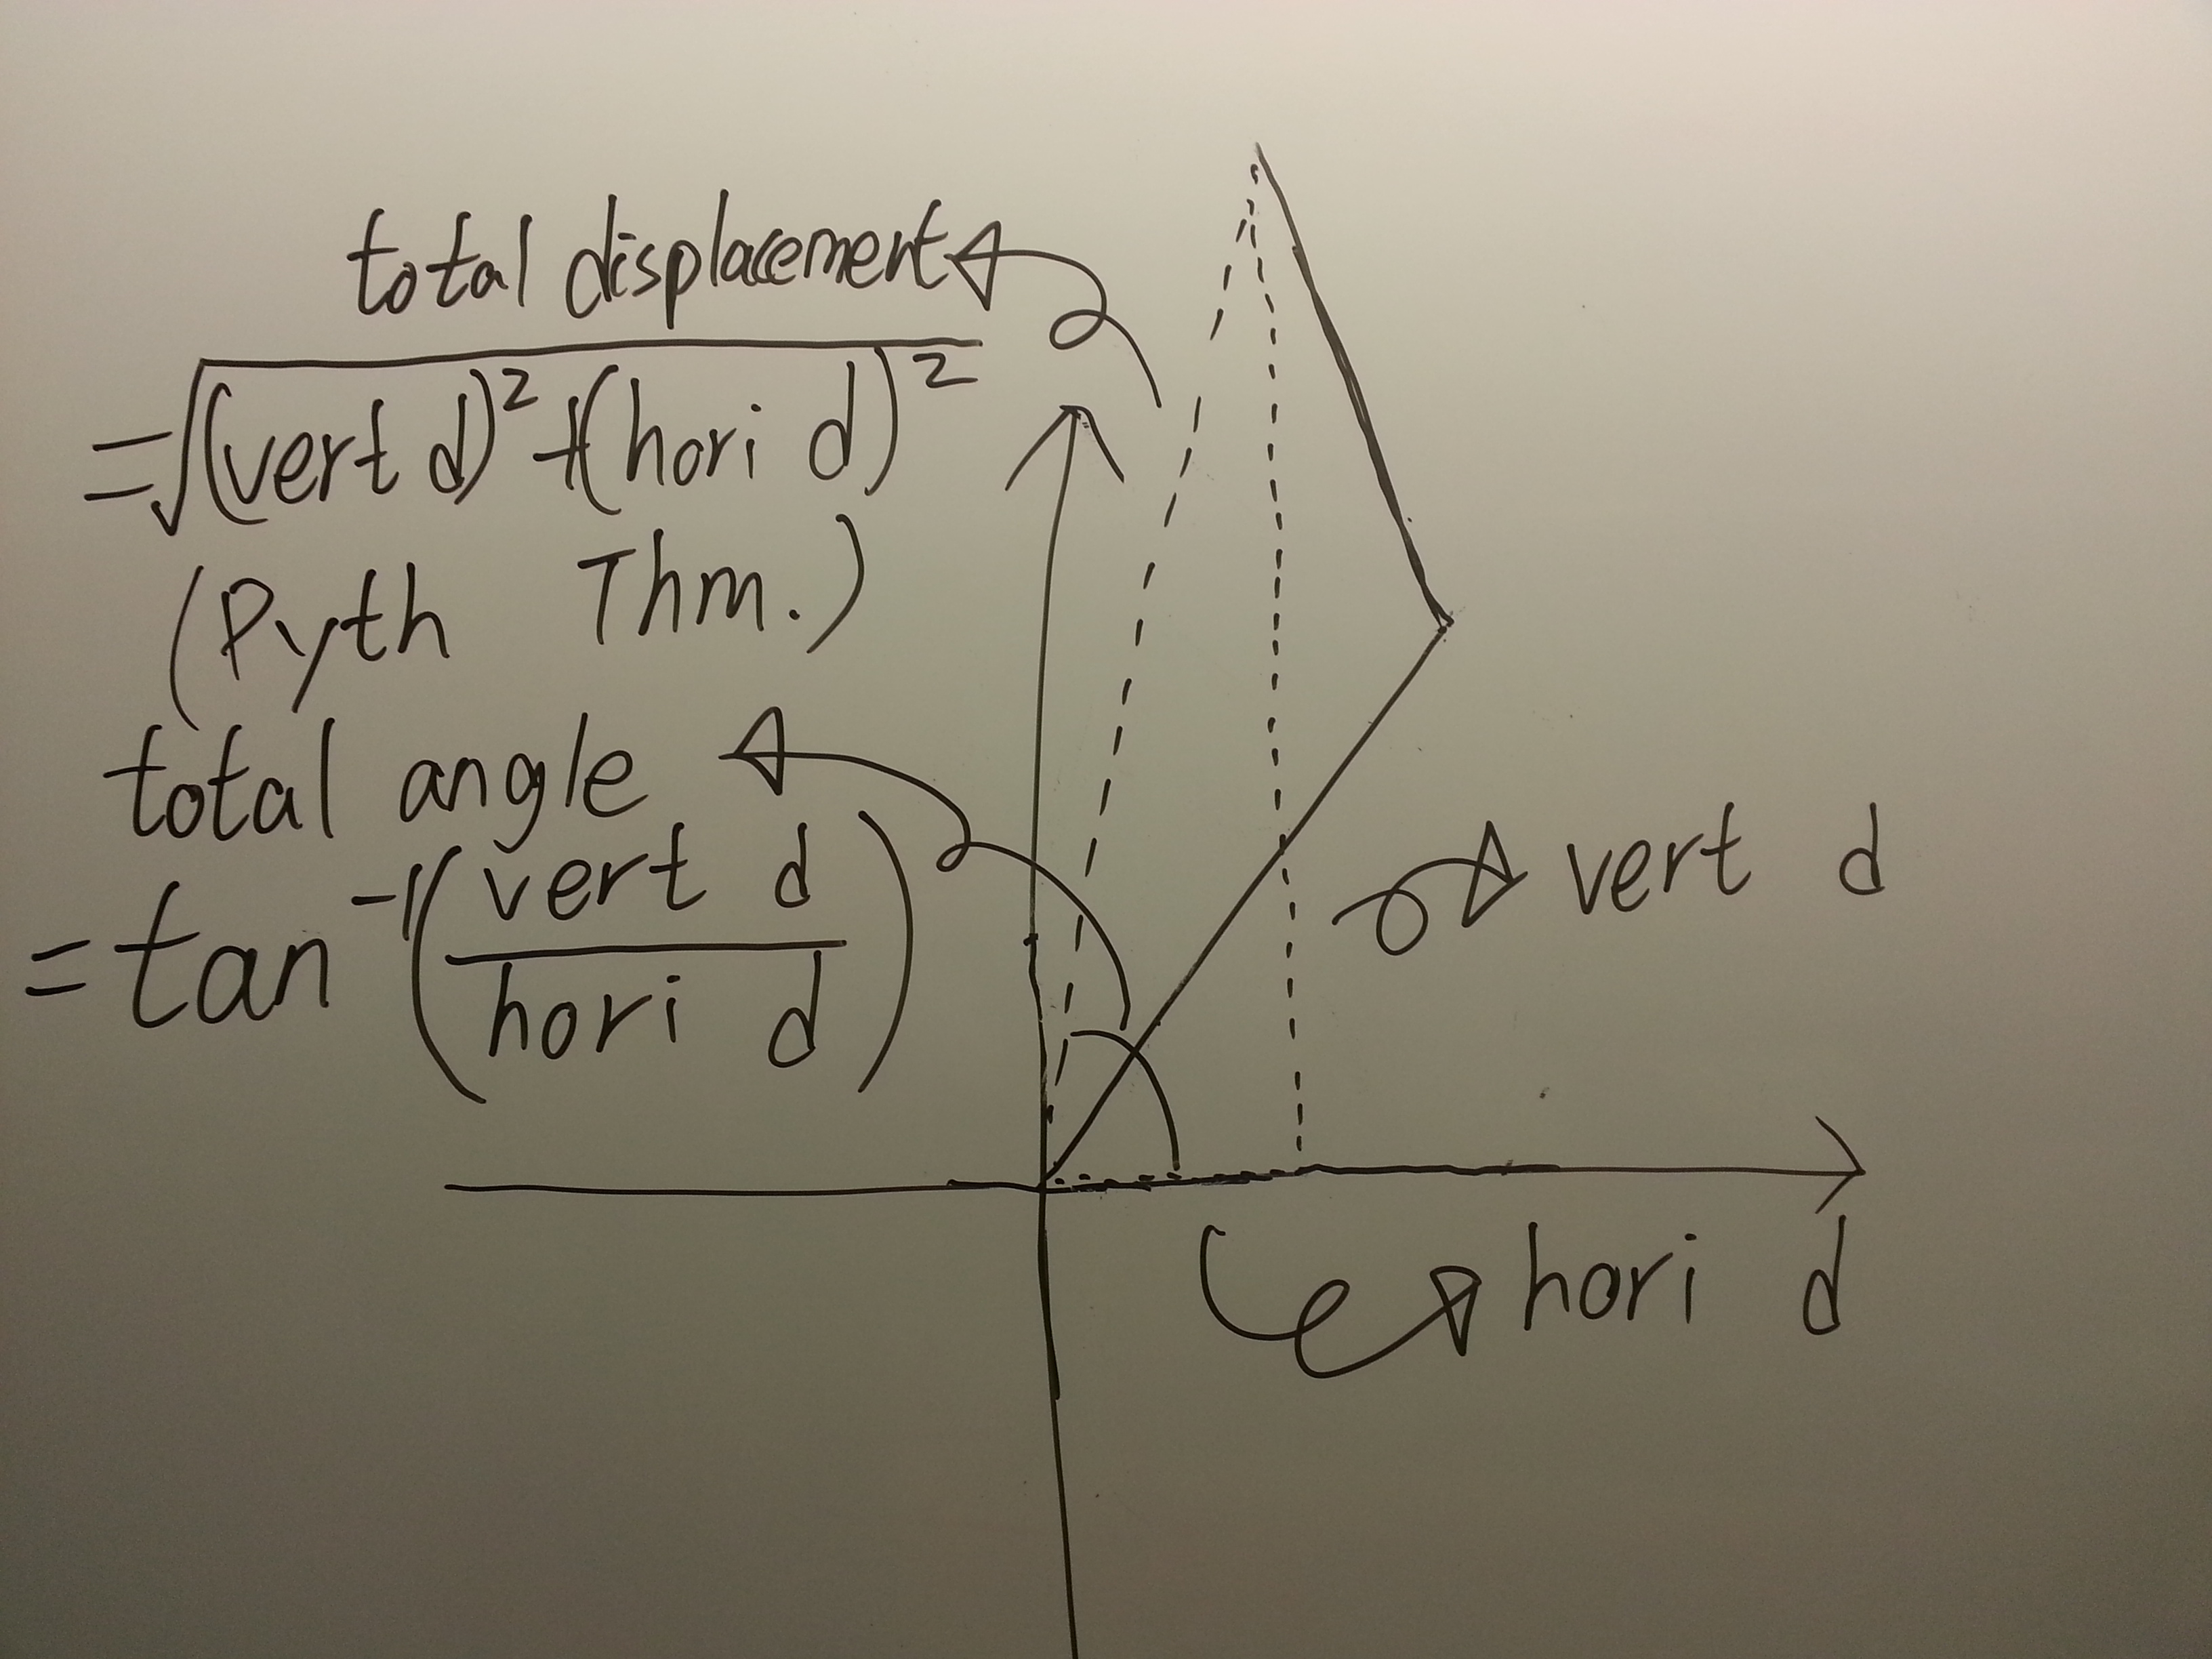 total displacement
=√((vert d)²+(hori d)²)
(Pyth Thm.)
total angle
=tan⁻¹(vert d / hori d)
vert d
hori d